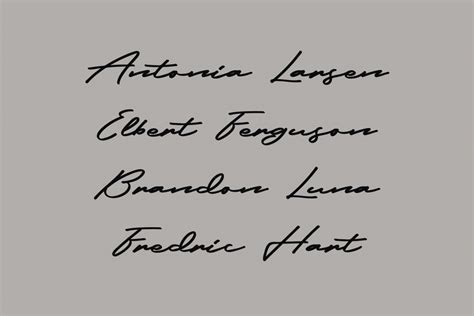 Antonia Larsen
Elbert Ferguson
Brandon Luna
Fredric Hart